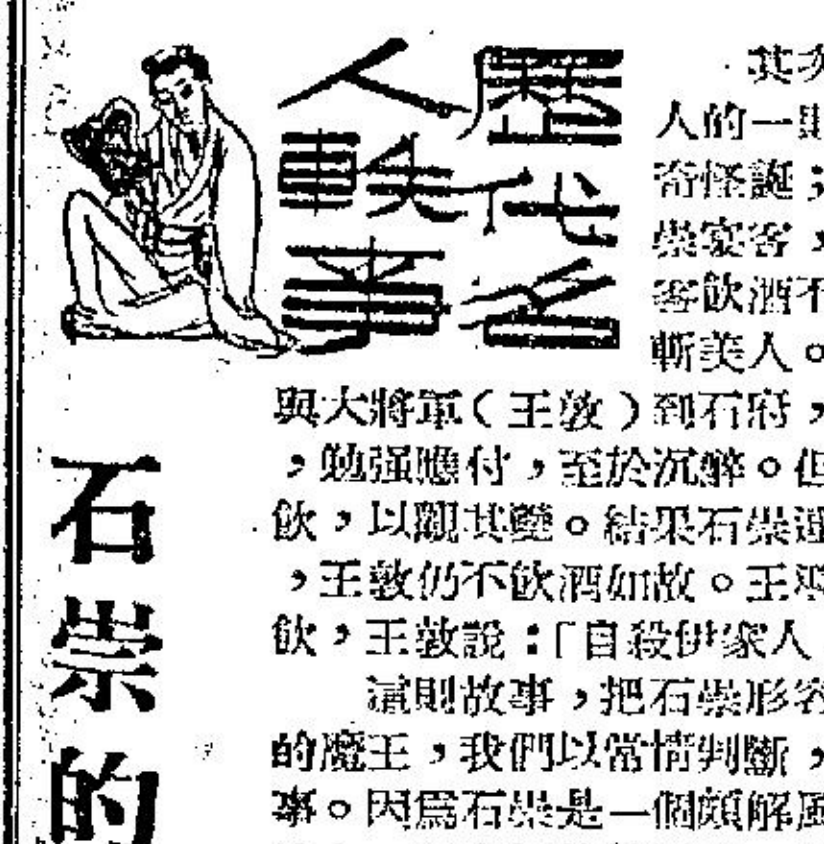 歷代名人軼事
石崇的
其次
人的一則
奇怪誕；
崇宴客，
客飲酒不
斬美人。
與大將軍（王敦）到石府，
，勉强應付，至於沉醉。但
飲，以觀其變。結果石崇連
，王敦仍不飲酒如故。王導
飲，王敦說：「自殺伊家人
這則故事，把石崇形容
的魔王，我們以常情判斷，
事。因爲石崇是一個頗解風